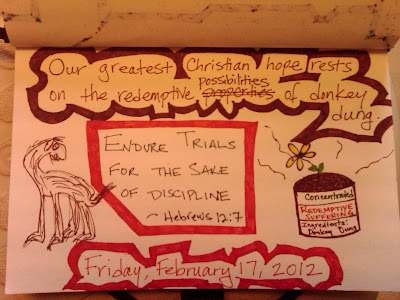 Our greatest Christian hope rests
possibilities
on the redemptive properties of donkey
dung.
ENDURE TRIALS
FOR THE SAKE
OF DISCIPLINE
~ Hebrews 12:7
Concentrated
REDEMPTIVE
SUFFERING
Ingredients:
Donkey Dung
Friday, February 17, 2012